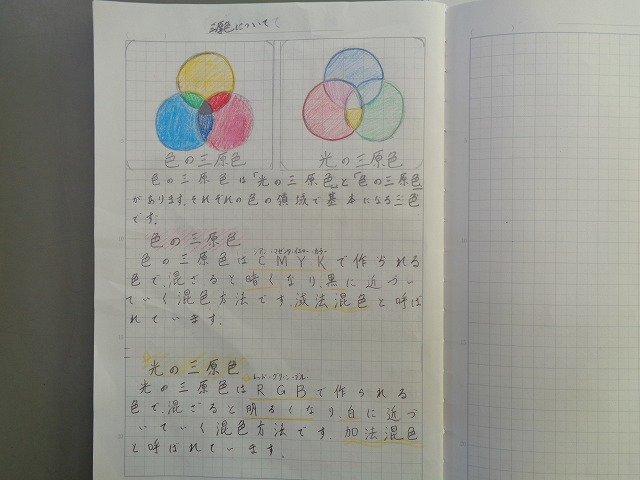 三原色について
色の三原色
光の三原色
色の三原色は「光の三原色」と「色の三原色」
があります。それぞれの色の領域で基本になる三色
です。
色の三原色
シアン・マゼンタ・イエロー・カラー
色の三原色はCMYKで作られる
色で、混ざると暗くなり、黒に近づい
ていく混色方法です。減法混色と呼ば
れています。
光の三原色
レッド・グリーン・ブルー
光の三原色はRGBで作られる
色で、混ざると明るくなり、白に近づ
いていく混色方法です。加法混色
と呼ばれています。